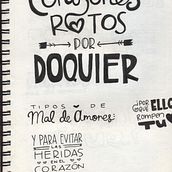 Corazones
ROTOS
POR
DOQUIER
TIPOS DE
Mal de Amores
¿POR QUÉ ELLO
ROMPEN
TU
Y PARA EVITAR
LAS
HERIDAS
EN EL
CORAZÓN